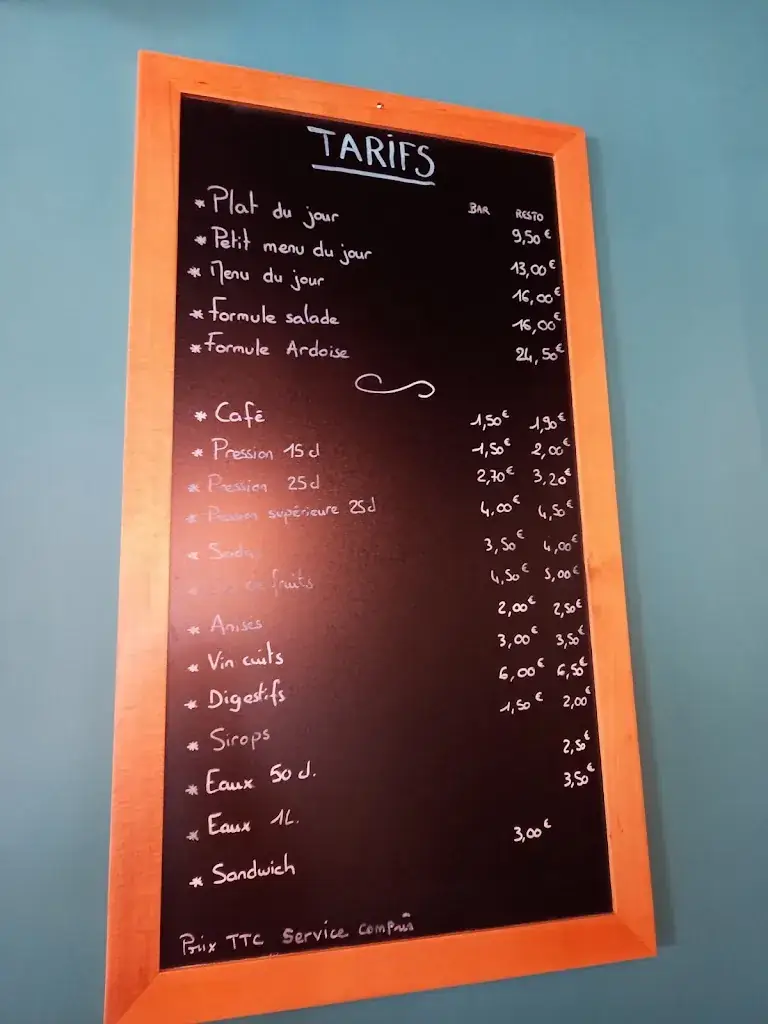 TARIFS
BAR RESTO
* Plat du jour 9,50€
* Petit menu du jour 13,00€
* Menu du jour 16,00€
* Formule salade 16,00€
* Formule Ardoise 24,50€
* Café 1,50€ 1,90€
* Pression 15cl 1,50€ 2,00€
* Pression 25cl 2,70€ 3,20€
* Pression supérieure 25cl 4,00€ 4,50€
* Soda 3,50€ 4,00€
* de fruits 4,50€ 5,00€
* Anisés 2,00€ 2,50€
* Vin cuits 3,00€ 3,50€
* Digestifs 6,00€ 6,50€
* Sirops 1,50€ 2,00€
* Eaux 50cl. 2,50€
* Eaux 1L. 3,50€
* Sandwich 3,00€
Prix TTC Service compris